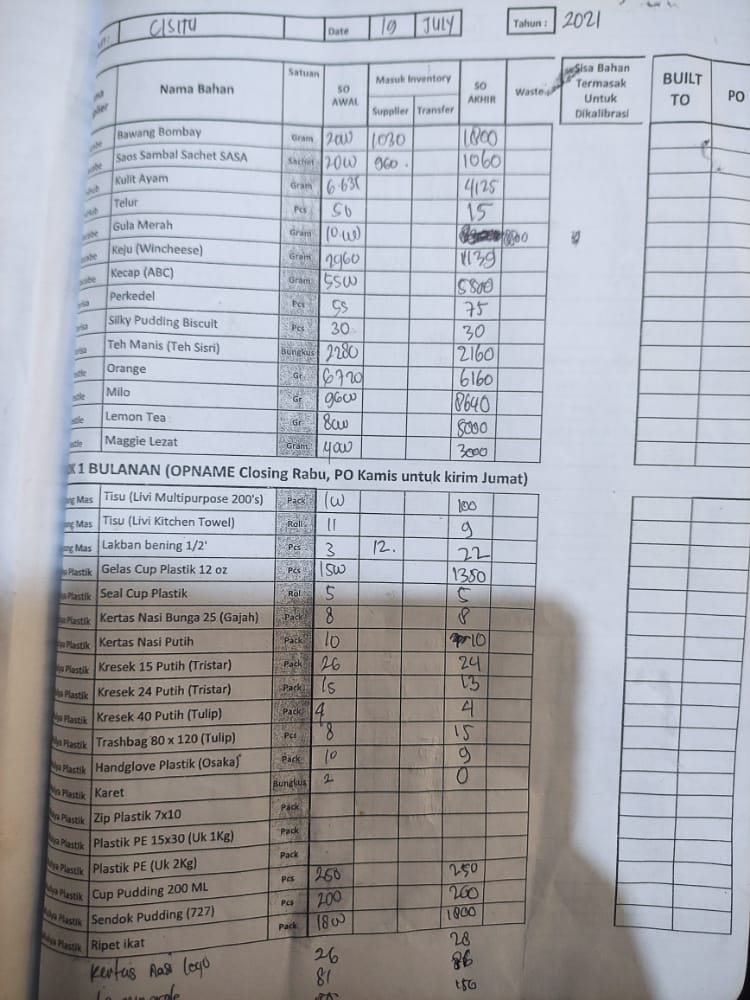 CISITU Date 19 JULY Tahun : 2021
Nama Bahan Satuan SO AWAL Masuk Inventory Supplier Transfer SO AKHIR Waste Sisa Bahan Termasak Untuk Dikalibrasi BUILT TO PO
Bawang Bombay Gram 200 1030 1800
Saos Sambal Sachet SASA Sachet 200 960 . 1060
Kulit Ayam Gram 4125
Telur Pcs 50 15
Gula Merah Gram
Keju (Wincheese) Gram 2960 1139
Kecap (ABC) Gram 5500 5800
Perkedel Pcs 55 75
Silky Pudding Biscuit Pcs 30 30
Teh Manis (Teh Sisri) Bungkus 2280 2160
Orange Gr 6720 6160
Milo Gr 9600 8640
Lemon Tea Gr 800 8000
Maggie Lezat Gram 400 3000
1 BULANAN (OPNAME Closing Rabu, PO Kamis untuk kirim Jumat)
Mas Tisu (Livi Multipurpose 200's) Pack 100 100
Mas Tisu (Livi Kitchen Towel) Roll 11 9
Mas Lakban bening 1/2' Pcs 3 12. 22
Plastik Gelas Cup Plastik 12 oz Pcs 1500 1350
Plastik Seal Cup Plastik Rol 5 5
Plastik Kertas Nasi Bunga 25 (Gajah) Pack 8 8
Plastik Kertas Nasi Putih Pack 10 10
Plastik Kresek 15 Putih (Tristar) Pack 26 24
Plastik Kresek 24 Putih (Tristar) Pack 15 13
Plastik Kresek 40 Putih (Tulip) Pack 4 4
Plastik Trashbag 80 x 120 (Tulip) Pcs 8 15
Plastik Handglove Plastik (Osaka) Pack 10 9
Plastik Karet Bungkus 2 0
Plastik Zip Plastik 7x10 Pack
Plastik Plastik PE 15x30 (Uk 1Kg) Pack
Plastik Plastik PE (Uk 2Kg) Pack
Plastik Cup Pudding 200 ML Pcs 250 250
Plastik Sendok Pudding (727) Pcs 200 200
Plastik Ripet ikat Pack 1800 1800
Kertas Nasi Lego 26 28
81